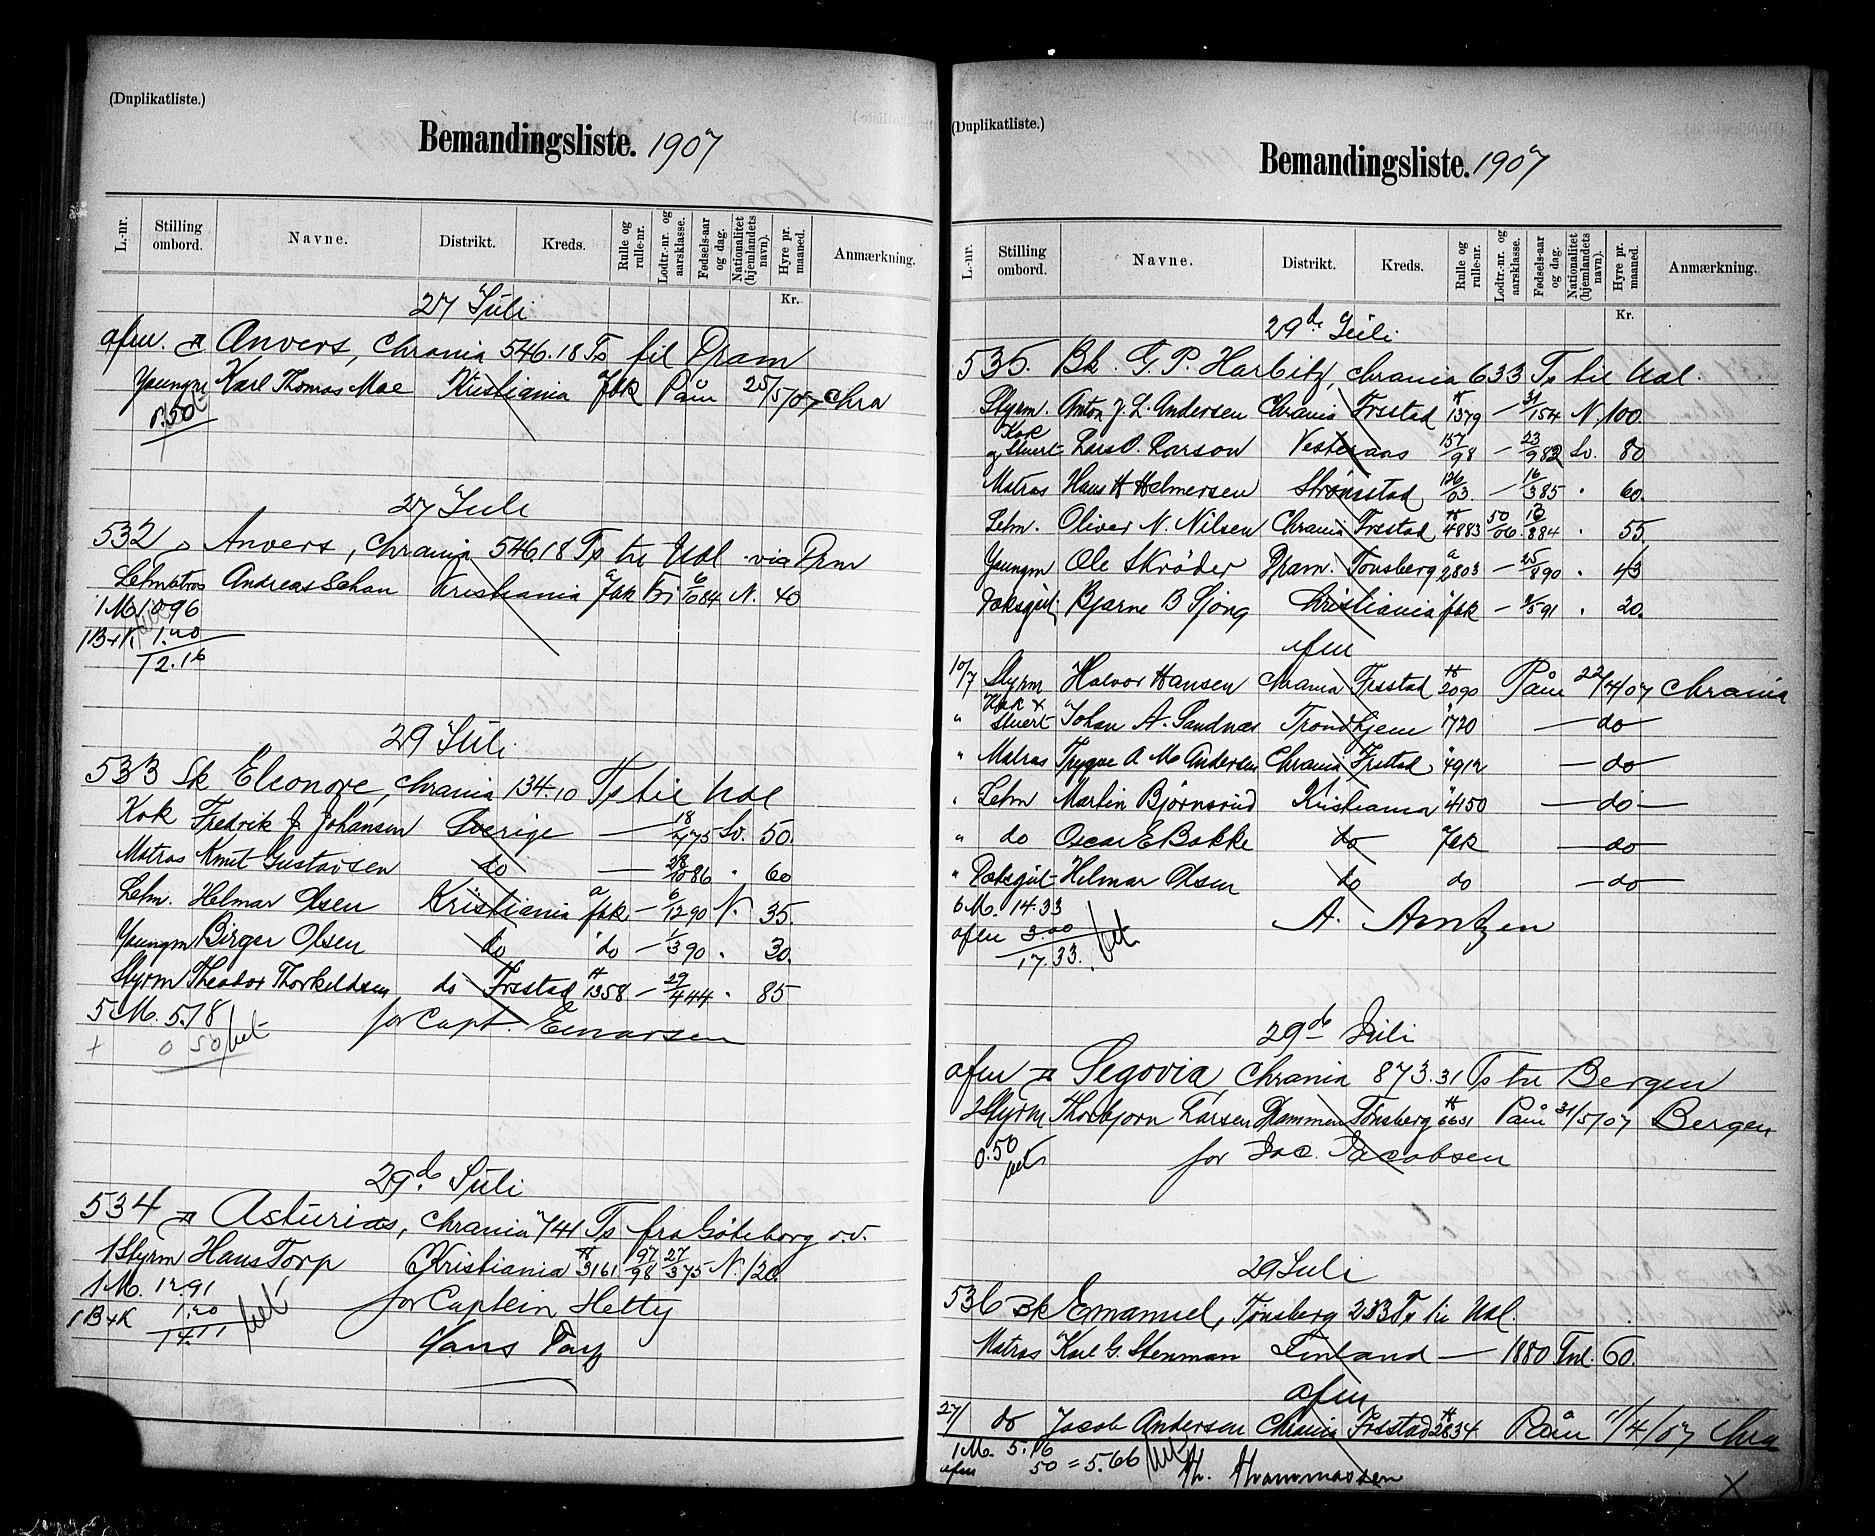 (Duplikatliste.)
Bemandingsliste. 1907
L.-nr. Stilling ombord. Navne. Distrikt. Kreds. Rulle og rulle-nr. Lodtr.-nr. og aarsklasse. Fødsels-aar og dag. Nationalitet (hjemlandets navn). Hyre pr. maaned. Anmærkning.
Kr.
27 Juli
afm. Anvers, Chrania 546.18 Ts til Dram
Youngm Karl Thomas Moe Kristiania fak Paam 25/5/07 Chra
0.50
27 Juli
532 Anvers, Chrania 546.18 Ts til Udl. via Drm
Letmatros Andreas Schau Kristiania a fak 6/10 84 N. 40
1 M. 10.96
1 B+K. 1.20
12.16
29 Juli
533 Sk Eleonore, Chrania 134.10 Ts til Udl
Kok Fredrik J. Johansen Sverige — 18/7 75 Sv. 50.
Matros Knut Gustavsen do — 28/10 86 " 60
Letm. Helmar Olsen Kristiania a fak — 6/12 90 N. 35.
Youngm Birger Olsen do " do — 1/3 90 " 30.
Styrm Theodor Thorkeldsen do Frstad H 1358 — 29/4 44 " 85
5 M. 5.78
0 50 bet
for Capt. Einarsen
29de Juli
534 Asturias, Chrania 741 Ts fra Göteborg
1 Styrm Hans Torp Kristiania H 3161 97/98 27/3 75 N. 120.
1 M. 12.91
1 B+K 1.20
14.11 bet
for Captein Hetty
Hans Torp
(Duplikatliste.)
Bemandingsliste. 1907
L.-nr. Stilling ombord. Navne. Distrikt. Kreds. Rulle og rulle-nr. Lodtr.-nr. og aarsklasse. Fødsels-aar og dag. Nationalitet (hjemlandets navn). Hyre pr. maaned. Anmærkning.
Kr.
29de Juli
535. Bk. G. P. Harbitz, Chrania 633 Ts til Udl.
Styrm. Anton J. L. Andersen Chrania Frstad H 1379 — 31/1 54 N. 100.
Kok og Stuert Lars O. Larson Vesteraas 157/98 — 23/9 82 Sv. 80
Matros Hans H Helmersen Strömstad 126/03 — 16/3 85 " 60.
Letm. Oliver N. Nilsen Chrania Frstad H 4883 50/06 13/8 84 " 55.
Youngm Ole Skrøder Dram. Tønsberg a 2803 — 25/8 90 " 43
Dæksgut Bjarne B Sjong Kristiania fak — 2/5 91 " 20.
afm
10/7 Styrm Halvor Hansen Chrania Frstad H 2090 Paam 22/4/07 Chrania
" Kok + Stuert Johan A. Sandnæs Trondhjem " 1720 — do
" Matros Trygve A M Andersen Chrania Frstad " 4912 — do —
" Letm Martin Bjørnsrud Kristiania " 4150 — do —
" do Oscar E Bakke do fak — do —
" Dæksgut Hilmar Olsen do do — do —
6 M. 14.33
afm 3.00
17.33. bet
A. Arntzen
29de Juli
afm Segovia, Chrania 873.31 Ts til Bergen
2 Styrm Thorbjørn Larsen Drammen Tønsberg H 6631 Paam 31/5/07 Bergen
0.50 bet
for Jac. Jacobsen
29 Juli
536 Sk Emanuel, Tønsberg 283 Ts til Udl.
Matros Karl G. Stenman Finland — 1880 Fnl. 60.
afm
27/ do Jacob Andersen Chrania Frstad H 2834 Paam 11/4/07 Chra
1 M. 5.16
afm 50 = 5.66 bet